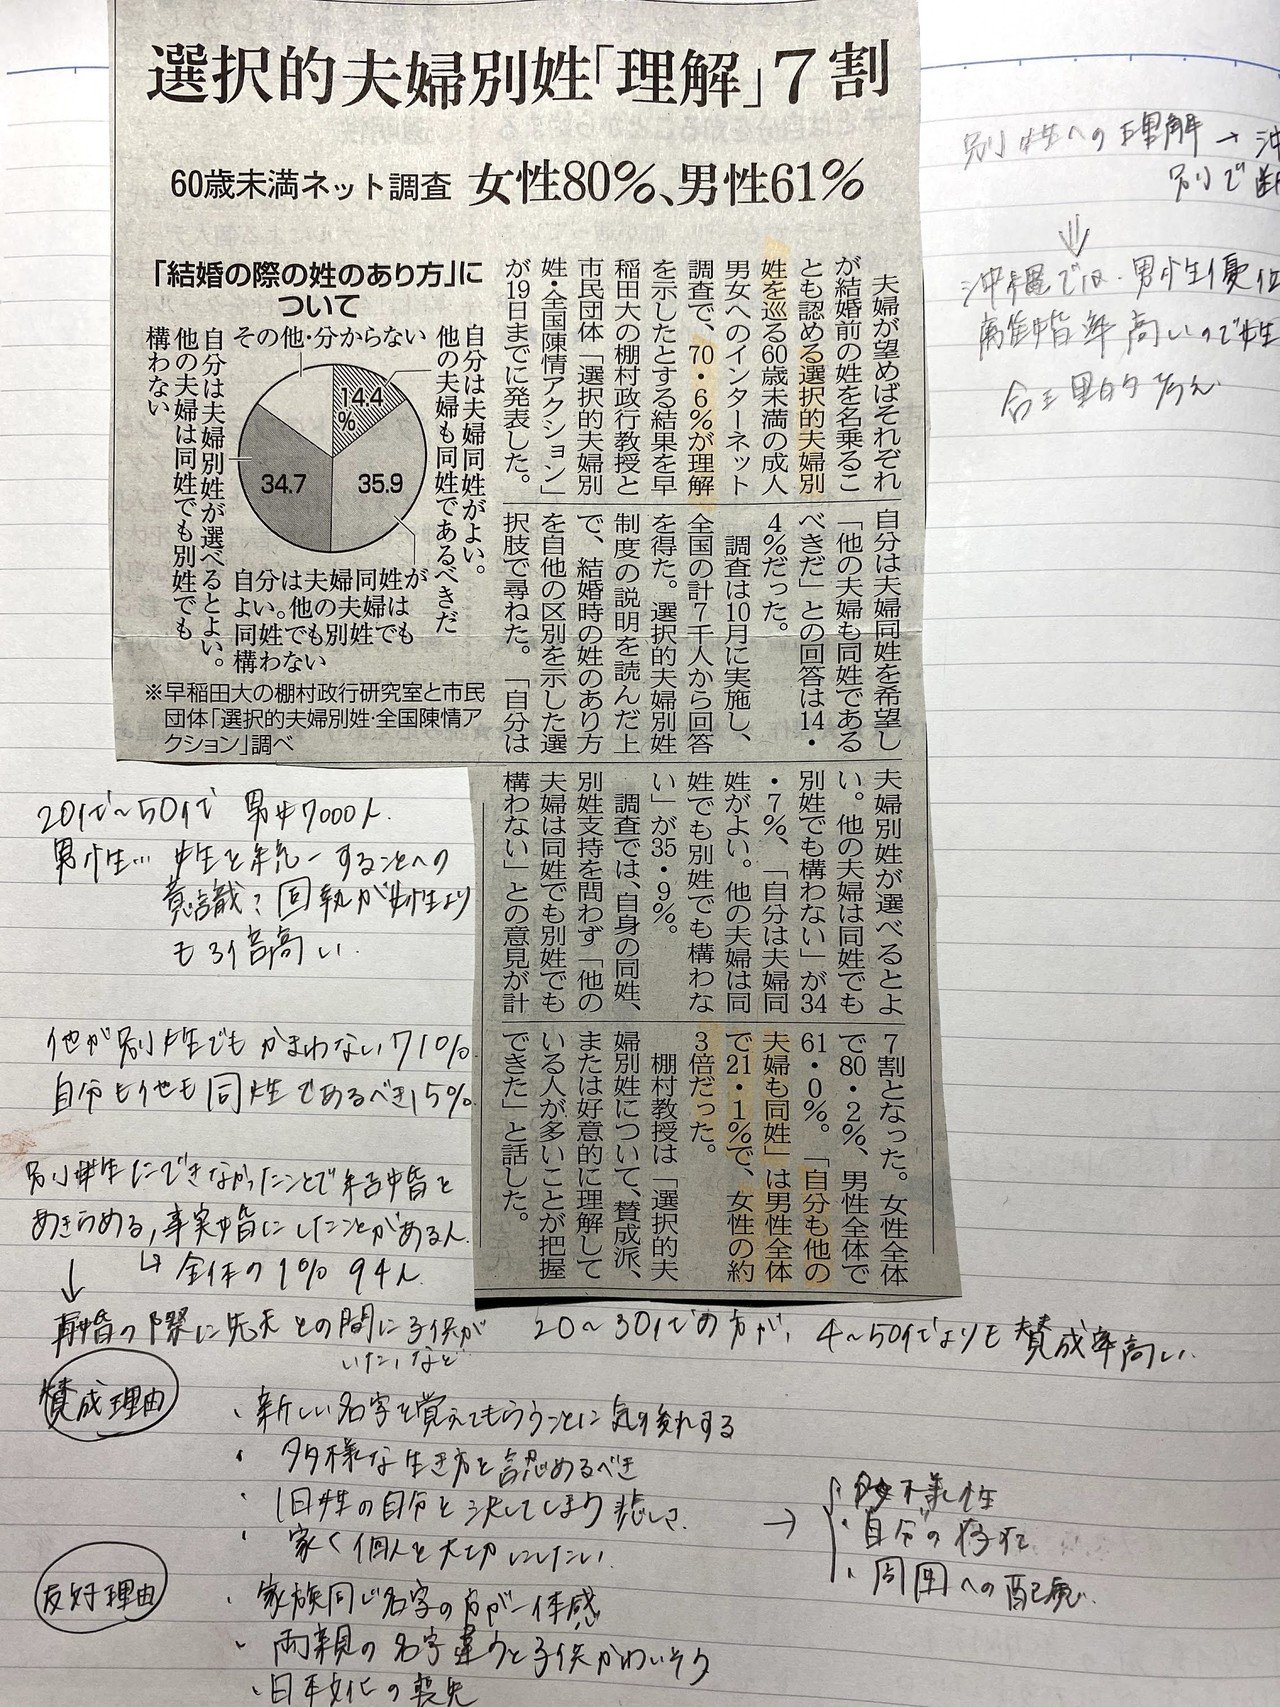 選択的夫婦別姓「理解」7割
60歳未満ネット調査 女性80%、男性61%
「結婚の際の姓のあり方」に
ついて
その他・分からない
自分は夫婦同姓がよい。
他の夫婦も同姓であるべきだ
14.4
%
35.9
34.7
自分は夫婦別姓が選べるとよい。
他の夫婦は同姓でも別姓でも
構わない
自分は夫婦同姓が
よい。他の夫婦は
同姓でも別姓でも
構わない
※早稲田大の棚村政行研究室と市民
団体「選択的夫婦別姓・全国陳情ア
クション」調べ
夫婦が望めばそれぞれ
が結婚前の姓を名乗るこ
とも認める選択的夫婦別
姓を巡る60歳未満の成人
男女へのインターネット
調査で、70・6%が理解
を示したとする結果を早
稲田大の棚村政行教授と
市民団体「選択的夫婦別
姓・全国陳情アクション」
が19日までに発表した。
自分は夫婦同姓を希望し
「他の夫婦も同姓である
べきだ」との回答は14・
4%だった。
調査は10月に実施し、
全国の計7千人から回答
を得た。選択的夫婦別姓
制度の説明を読んだ上
で、結婚時の姓のあり方
を自他の区別を示した選
択肢で尋ねた。「自分は
夫婦別姓が選べるとよ
い。他の夫婦は同姓でも
別姓でも構わない」が34
・7%、「自分は夫婦同
姓がよい。他の夫婦は同
姓でも別姓でも構わな
い」が35・9%。
調査では、自身の同姓、
別姓支持を問わず「他の
夫婦は同姓でも別姓でも
構わない」との意見が計
7割となった。女性全体
で80・2%、男性全体で
61・0%。「自分も他の
夫婦も同姓」は男性全体
で21・1%で、女性の約
3倍だった。
棚村教授は「選択的夫
婦別姓について、賛成派、
または好意的に理解して
いる人が多いことが把握
できた」と話した。
別姓への理解→沖
別で
⇓
沖縄では、男性優位
離婚率高いので
合理的
20代〜50代 男女7000人
男性… 姓を統一することへの
意識?固執が女性より
も3倍高い
他が別姓でもかまわない71%
自分も他も同姓であるべき15%
別姓にできなかったことで結婚を
あきらめる,事実婚にしたことがある人
↳ 全体の1% 94人
↓
再婚の際に先夫との間に子供が
いた,など
20〜30代の方が,4〜50代よりも賛成率高い
賛成理由
・新しい名字を覚えてもらうことに気後れする
・多様な生き方を認めるべき
・旧姓の自分と決してしまう悲しさ
・家く個人を大切にしたい
→
・多様性
・自分の存在
・周囲への配慮
反対理由
・家族同じ名字の方が一体感
・両親の名字違うと子供かわいそう
・日本文化の喪失